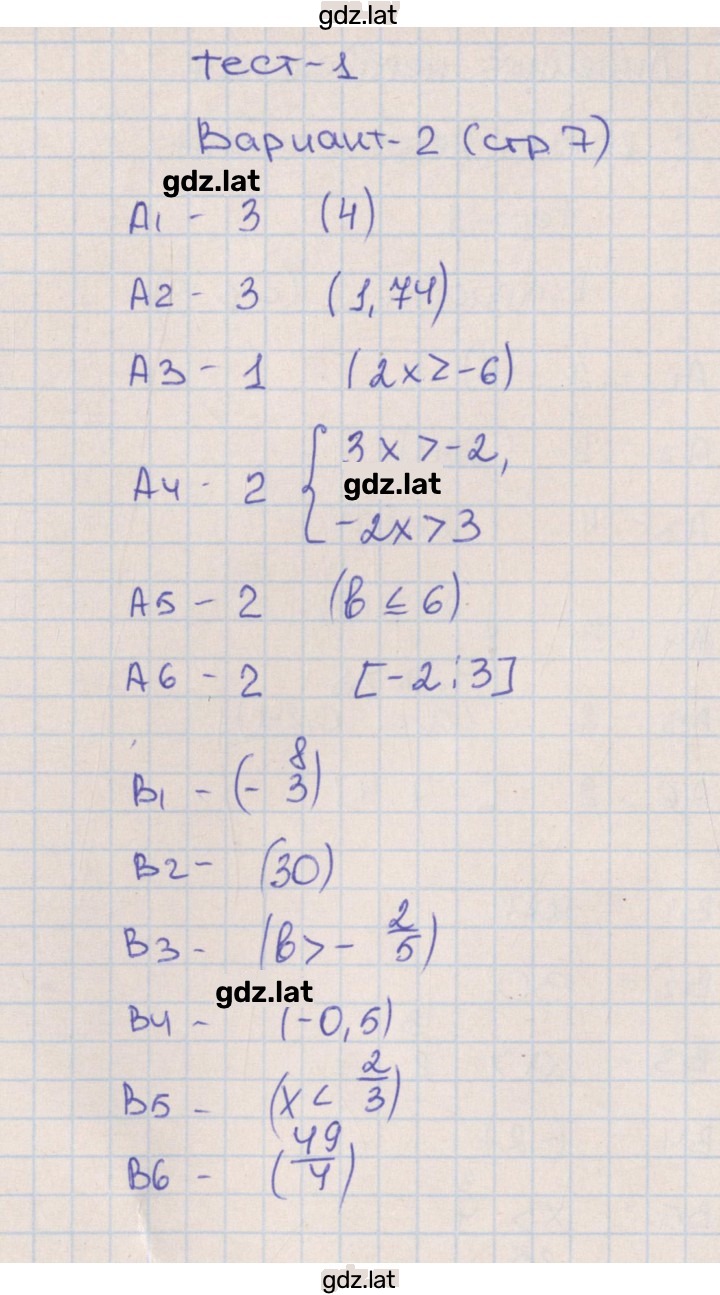 gdz.lat
тест-1
Вариант-2 (стр 7)
gdz.lat
А1 - 3 (4)
А2 - 3 (1,74)
А3 - 1 (2x≥-6)
А4 - 2 { 3x>-2,
gdz.lat
-2x>3
А5 - 2 (b≤6)
А6 - 2 [-2;3]
В1 - (- 8/3)
В2 - (30)
В3 - (b>- 2/5)
gdz.lat
В4 - (-0,5)
В5 - (x< 2/3)
В6 - (49/4)
gdz.lat